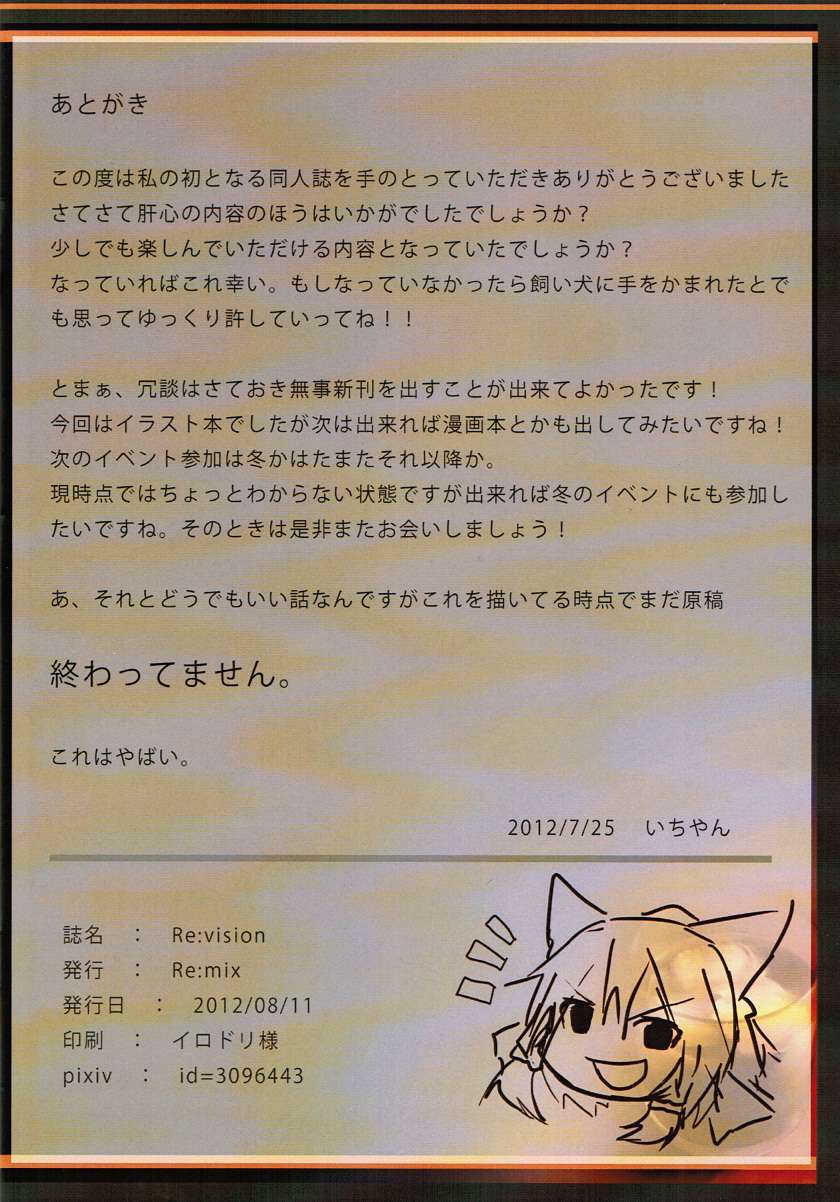 あとがき
この度は私の初となる同人誌を手のとっていただきありがとうございました
さてさて肝心の内容のほうはいかがでしたでしょうか？
少しでも楽しんでいただける内容となっていたでしょうか？
なっていればこれ幸い。もしなっていなかったら飼い犬に手をかまれたとで
も思ってゆっくり許していってね！！
とまぁ、冗談はさておき無事新刊を出すことが出来てよかったです！
今回はイラスト本でしたが次は出来れば漫画本とかも出してみたいですね！
次のイベント参加は冬かはたまたそれ以降か。
現時点ではちょっとわからない状態ですが出来れば冬のイベントにも参加し
たいですね。そのときは是非またお会いしましょう！
あ、それとどうでもいい話なんですがこれを描いてる時点でまだ原稿
終わってません。
これはやばい。
2012/7/25　いちやん
誌名　：　Re:vision
発行　：　Re:mix
発行日　：　2012/08/11
印刷　：　イロドリ様
pixiv　：　id=3096443